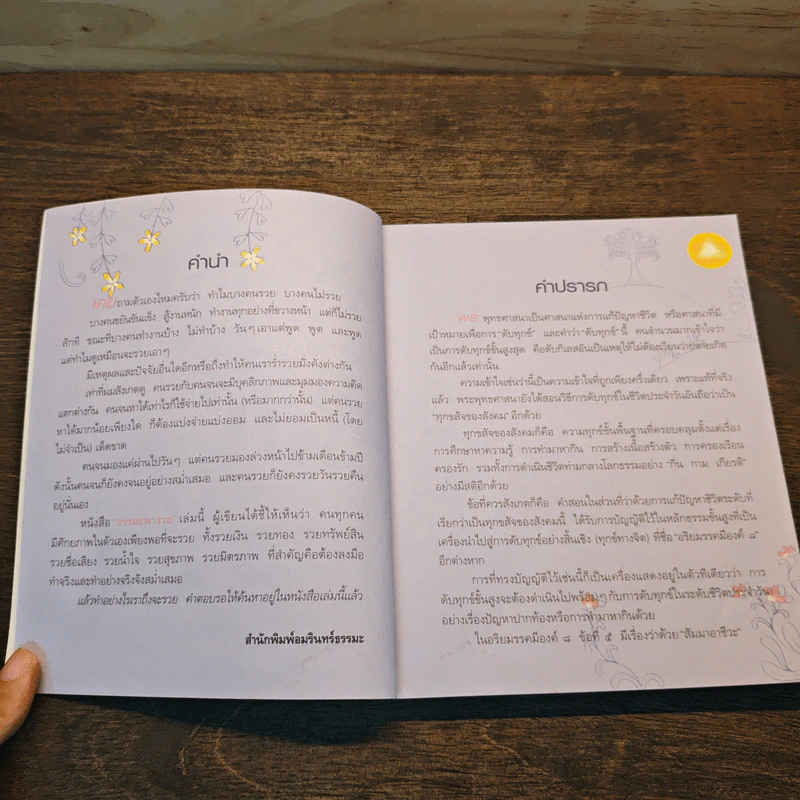 คำนำ
เคยถามตัวเองไหมครับว่า ทำไมบางคนรวย บางคนไม่รวย
บางคนขยันขันแข็ง สู้งานหนัก ทำงานทุกอย่างที่ขวางหน้า แต่ก็ไม่รวย
สักที ขณะที่บางคนทำงานบ้าง ไม่ทำบ้าง วันๆ เอาแต่พูด พูด และพูด
แต่ทำไมดูเหมือนจะรวยเอาๆ
มีเหตุผลและปัจจัยอื่นใดอีกหรือถึงทำให้คนเราร่ำรวยมั่งคั่งต่างกัน
เท่าที่ผมสังเกตดู คนรวยกับคนจนจะมีบุคลิกภาพและมุมมองความคิด
แตกต่างกัน คนจนหาได้เท่าไรก็ใช้จ่ายไปเท่านั้น (หรือมากกว่านั้น) แต่คนรวย
หาได้มากน้อยเพียงใด ก็ต้องแบ่งจ่ายแบ่งออม และไม่ยอมเป็นหนี้ (โดย
ไม่จำเป็น) เด็ดขาด
คนจนมองแค่ผ่านไปวันๆ แต่คนรวยมองล่วงหน้าไปข้ามเดือนข้ามปี
ดังนั้นคนจนก็ยังคงจนอยู่อย่างสม่ำเสมอ และคนรวยก็ยังคงรวยวันรวยคืน
อยู่นั่นเอง
หนังสือ "ธรรมะพารวย" เล่มนี้ ผู้เขียนได้ชี้ให้เห็นว่า คนทุกคน
มีศักยภาพในตัวเองเพียงพอที่จะรวย ทั้งรวยเงิน รวยทอง รวยทรัพย์สิน
รวยชื่อเสียง รวยน้ำใจ รวยสุขภาพ รวยมิตรภาพ ที่สำคัญคือต้องลงมือ
ทำจริงและทำอย่างจริงจังสม่ำเสมอ
แล้วทำอย่างไรเราถึงจะรวย คำตอบรอให้ค้นหาอยู่ในหนังสือเล่มนี้แล้ว
สำนักพิมพ์อมรินทร์ธรรมะ
คำปรารภ
พระพุทธศาสนาเป็นศาสนาแห่งการแก้ปัญหาชีวิต หรือศาสนาที่มี
เป้าหมายเพื่อการ "ดับทุกข์" และคำว่า "ดับทุกข์" นี้ คนจำนวนมากเข้าใจว่า
เป็นการดับทุกข์ขั้นสูงสุด คือดับกิเลสอันเป็นเหตุให้ไม่ต้องเวียนว่ายตายเกิด
กันอีกแล้วเท่านั้น
ความเข้าใจเช่นว่านี้เป็นความเข้าใจที่ถูกเพียงครึ่งเดียว เพราะแท้ที่จริง
แล้ว พระพุทธศาสนายังได้สอนวิธีการดับทุกข์ในชีวิตประจำวันอันถือว่าเป็น
"ทุกขสัจของสังคม" อีกด้วย
ทุกขสัจของสังคมก็คือ ความทุกข์ขั้นพื้นฐานที่ครอบคลุมตั้งแต่เรื่อง
การศึกษาหาความรู้ การทำมาหากิน การสร้างเนื้อสร้างตัว การครองเรือน
ครองรัก รวมทั้งการดำเนินชีวิตท่ามกลางโลกธรรมอย่าง "กิน กาม เกียรติ"
อย่างมีสติอีกด้วย
ข้อที่ควรสังเกตก็คือ คำสอนในส่วนที่ว่าด้วยการแก้ปัญหาชีวิตระดับที่
เรียกว่าเป็นทุกขสัจของสังคมนี้ ได้รับการบัญญัติไว้ในหลักธรรมชั้นสูงที่เป็น
เครื่องนำไปสู่การดับทุกข์อย่างสิ้นเชิง (ทุกข์ทางจิต) ที่ชื่อ "อริยมรรคมีองค์ ๘"
อีกต่างหาก
การที่ทรงบัญญัติไว้เช่นนี้ก็เป็นเครื่องแสดงอยู่ในตัวทีเดียวว่า การ
ดับทุกข์ขั้นสูงจะต้องดำเนินไปพร้อมๆ กับการดับทุกข์ในระดับชีวิตประจำวัน
อย่างเรื่องปัญหาปากท้องหรือการทำมาหากินด้วย
ในอริยมรรคมีองค์ ๘ ข้อที่ ๕ มีเรื่องว่าด้วย "สัมมาอาชีวะ"